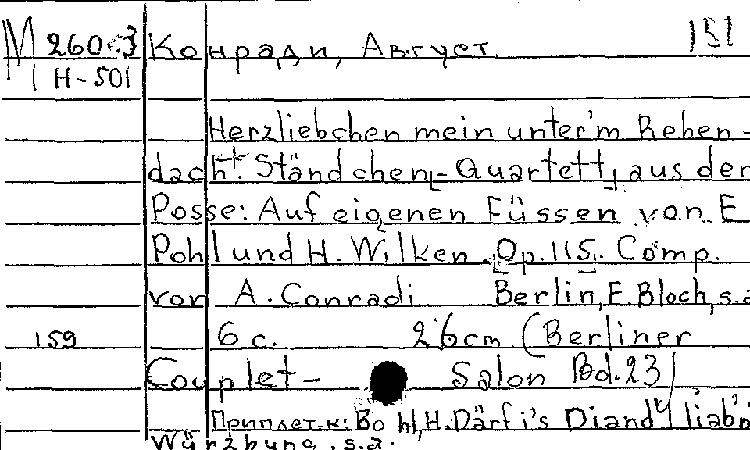 М 260-3 Конради, Август. 151
Н-501
Herzliebchen mein unter'm Reben-
dach. Ständchen-Quartett, aus der
Posse: Auf eigenen Füssen von E
Pohl und H. Wilken. Op. 115. Comp.
von A. Conradi Berlin, E. Bloch, s.a
159 6 c. 26cm (Berliner
Couplet- Salon Bd. 23)
Приплет. к: Bohl, H. Därf i's Diandl liab'n
Würzburg, s.a.